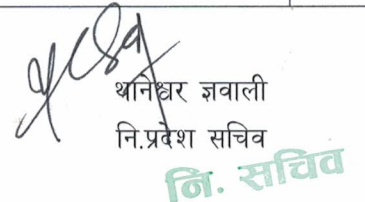 थानेश्वर ज्ञवाली
नि.प्रदेश सचिव
नि. सचिव